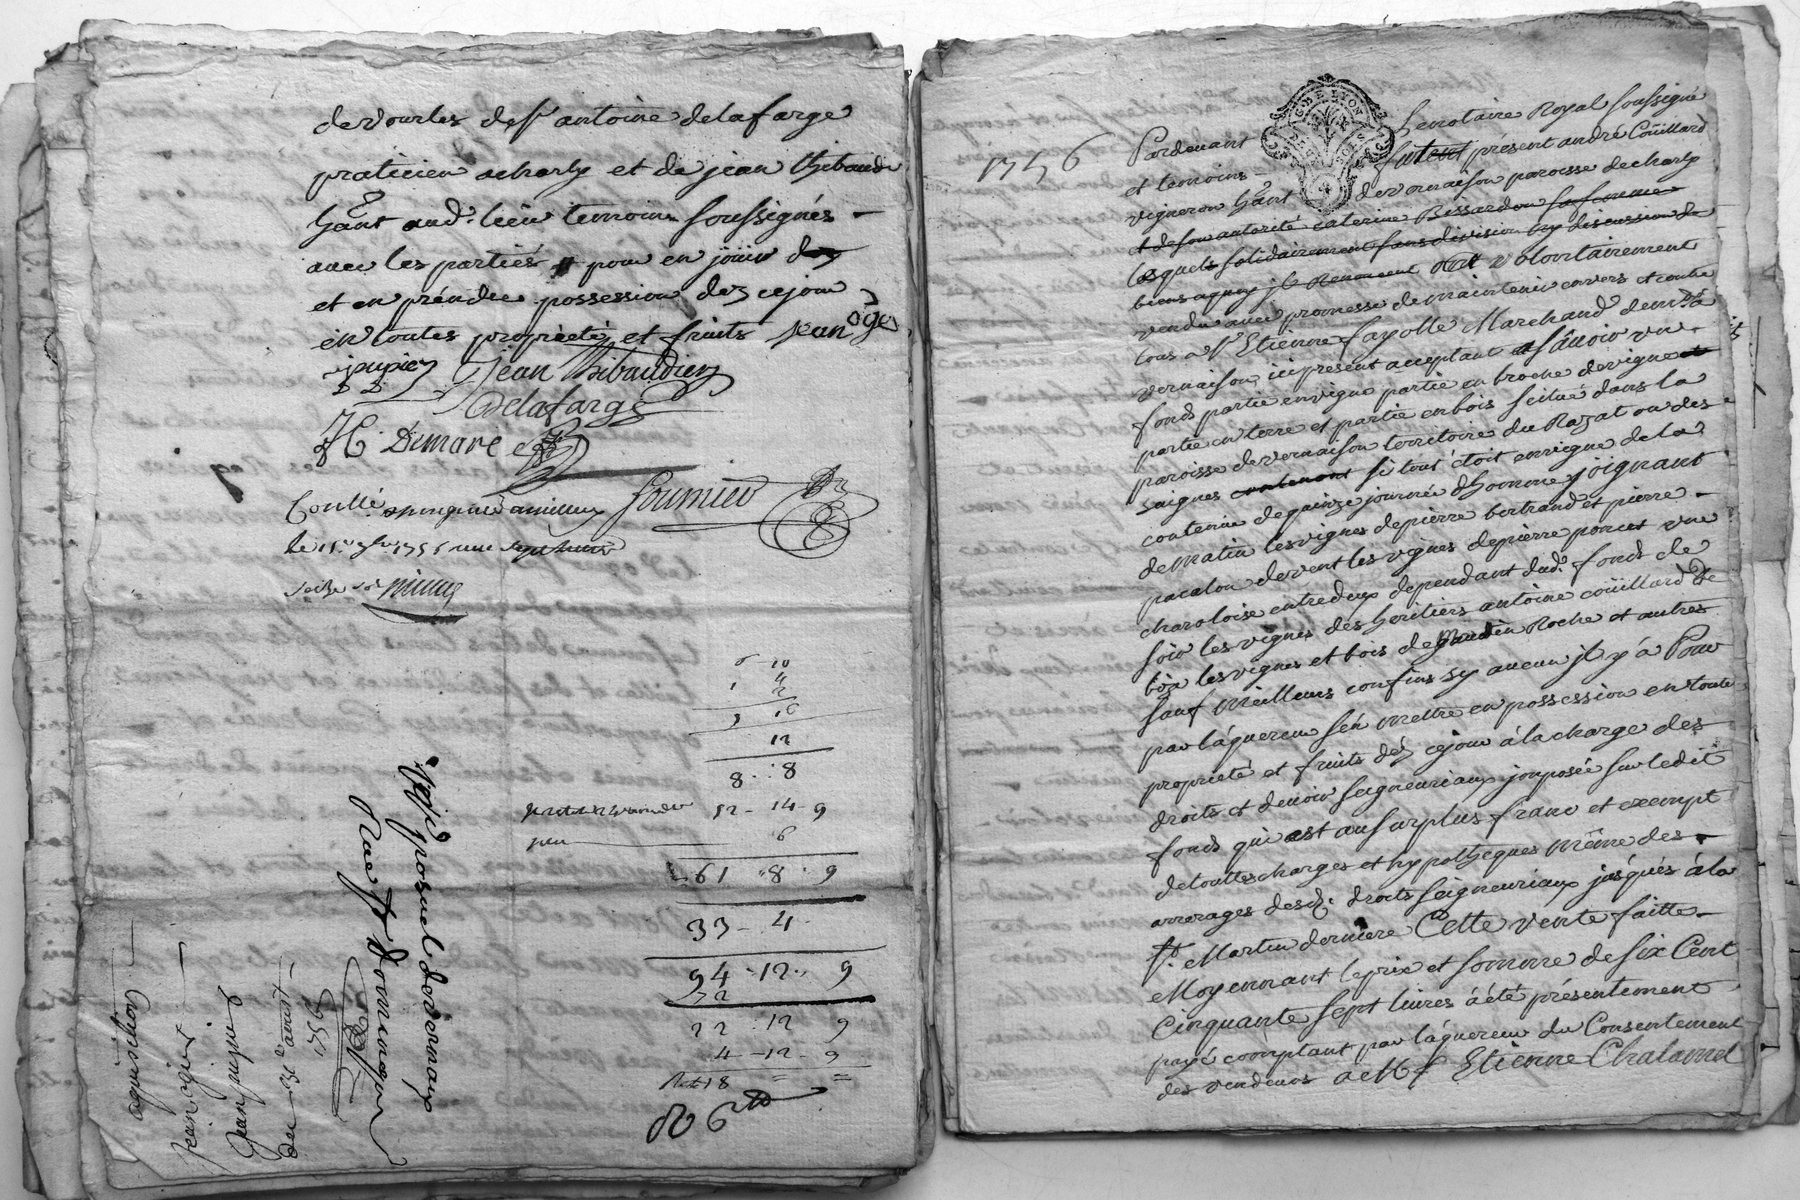 devourles de Sr antoine delafarge
praticien acharly et de jean thibaude
hant aud. lieu temoins soussignés
avec les parties pour en jöuir
et en prendre possession dez cejour
en toutes proprieté et fruits jean ogé
jean pupier Jean Thibaudier
Delafarge
Demare
Controllé
fournier
le 1755
acquisition
jean ogier
jean pupier
du 31e aoust
1756
posuel devernays
Rue St dominique
10
4
1 2
3 16
12
8 8
52 - 14 - 9
6
61 8 9
33 - 4
94 - 12 9
72
22 12 9
4 - 12 - 9
18 = =
806
1756
G DE LYON
Pardevant Le notaire Royal soussigné
et temoins fut présent andré Coüillard
vigneron hant devernaison paroisse decharly
et de son autorité caterine Bissardon sa femme
lesquels solidairement sans division ny discussion de
biens aquoy jls Renoncent volontairement
vendu avec promesse de maintenir envers et contre
tous a Sr Etienne fayolle Marchand demt. à
vernaison, icy present acceptant asçavoir un
fonds partie en vigne partie en broche de vigne et
partie en terre et partie en bois scitué dans la
paroisse devernaison territoire du Razat ou des
saignes contenant si tout étoit envigne de la
contenue de quinze journée dhomme joignant
dematin les vignes depierre bertrand et pierre
pacalon devent les vignes de pierre poncet une
charoloise entredeux dependant dud. fonds de
soir les vignes des heritiers antoine coüillard de
bize les vignes et bois de Roche et autres
sauf meilleurs confins sy aucun jl y à Pour
par láquereur sén mettre en possession en toute
proprieté et fruits déz cejour à la charge des
droits et devoir seigneuriaux jmposés sur ledit
fonds qui est au surplus franc et exempt
detouttes charges et hypotheques même des
arrerages desd. droits seigneuriaux jusqués à la
St. Martin derniere Cette vente faitte
Moyennant le prix et somme de six Cent
Cinquante sept livres à été présentement
payé comptant par láquereur du Consentement
des vendeurs a Mr Sr Etienne Chalamel